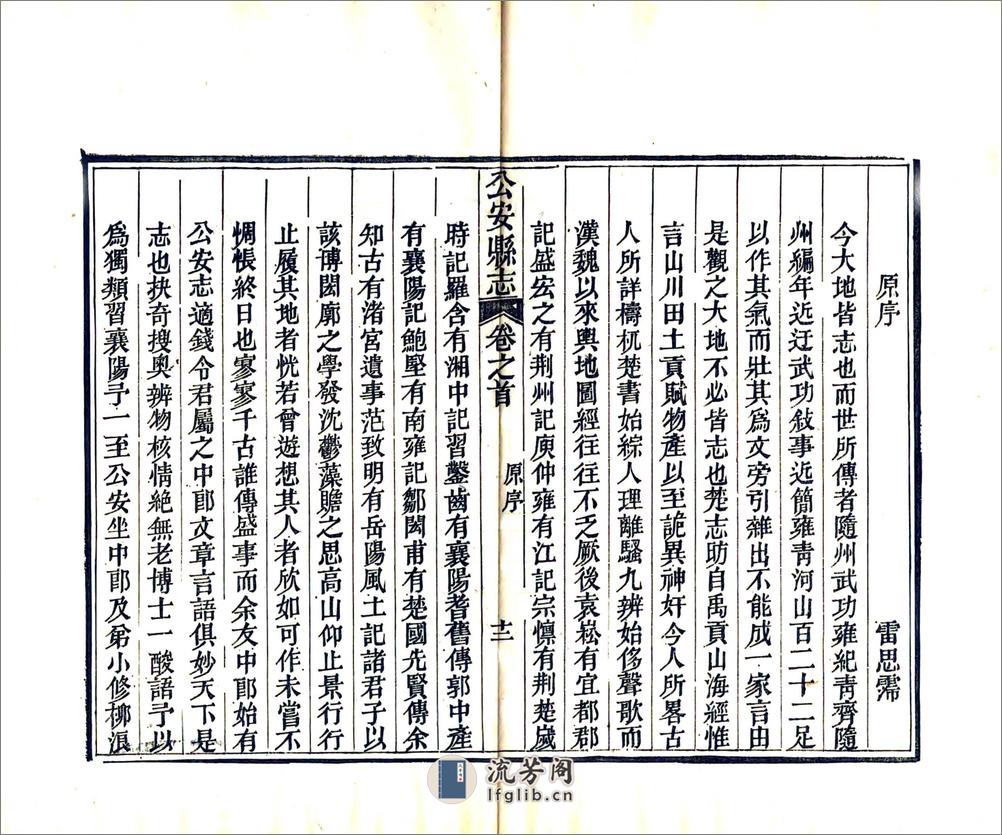 原序　雷思霈
今大地皆志也而世所傳者隨州武功雍紀靑齊隨
州編年近迂武功敍事近簡雍靑河山百二十二足
以作其氣而壯其爲文旁引雜出不能成一家言由
是觀之大地不必皆志也楚志昉自禹貢山海經惟
言山川田土貢賦物產以至詭異神奸今人所畧古
人所詳檮杌楚書始綜人理離騷九辨始侈聲歌而
漢魏以來輿地圖經往往不乏厥後袁崧有宜都郡
記盛宏之有荆州記庾仲雍有江記宗懍有荆楚歲
公安縣志　卷之首　原序　十二
時記羅含有湘中記習鑿齒有襄陽耆舊傳郭中產
有襄陽記鮑堅有南雍記鄒閎甫有楚國先賢傳余
知古有渚宮遺事范致明有岳陽風土記諸君子以
該博閎廓之學發沈鬱藻贍之思高山仰止景行行
止履其地者恍若曾遊想其人者欣如可作未嘗不
惆悵終日也寥寥千古誰傳盛事而余友中郎始有
公安志適錢令君屬之中郎文章言語俱妙天下是
志也抉奇搜奧辨物核情絕無老博士一酸語予以
爲獨類習襄陽予一至公安坐中郎及弟小修柳浪
流芳阁
lfglib.cn